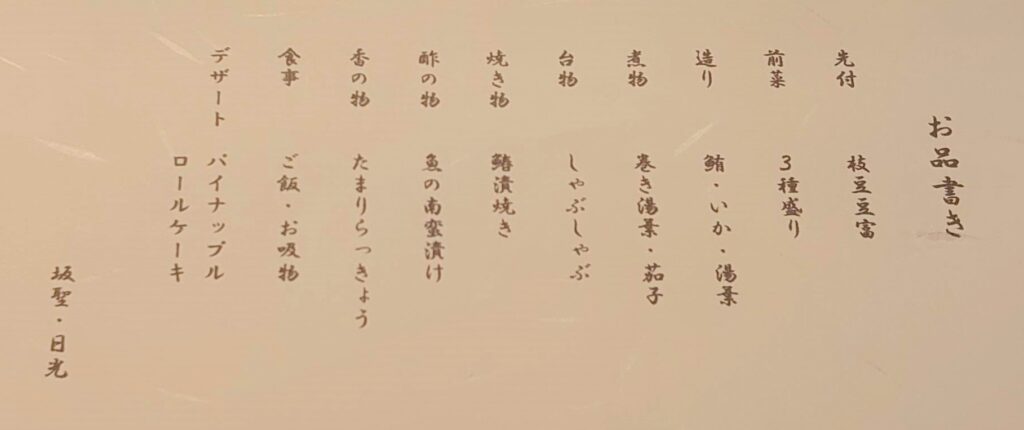 お品書き
先付 枝豆豆富
前菜 3種盛り
造り 鮪・いか・湯葉
煮物 巻き湯葉・茄子
台物 しゃぶしゃぶ
焼き物 鰆漬焼き
酢の物 魚の南蛮漬け
香の物 たまりらっきょう
食事 ご飯・お吸物
デザート パイナップル
ロールケーキ
坂聖・日光